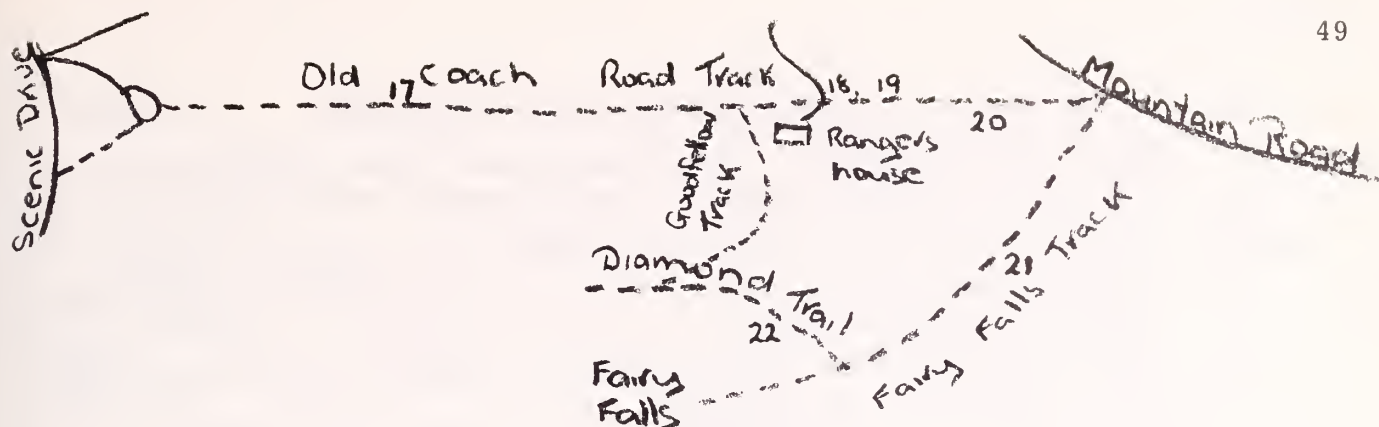 49
Scenic Drive
Old 17 Coach Road Track
18, 19
20
Mountain Road
Rangers
house
Goodfellow
Track
Diamond Trail
22
21
Fairy Falls Track
Fairy
Falls